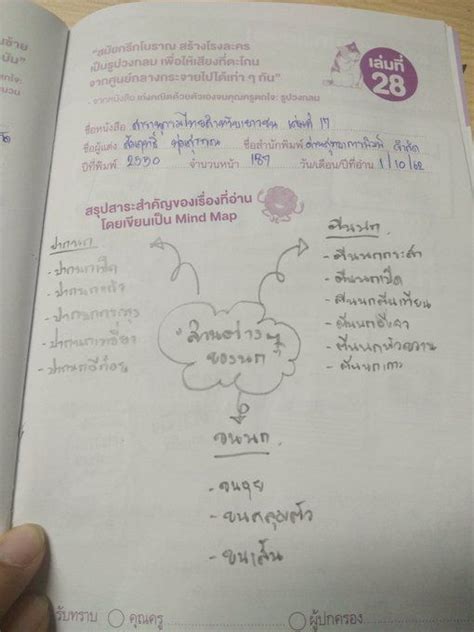 "สมัยกรีกโบราณ สร้างโรงละคร
เป็นรูปวงกลม เพื่อให้เสียงที่ตะโกน
จากศูนย์กลางกระจายไปได้เท่า ๆ กัน"
- จากหนังสือ เก่งคณิตด้วยตัวเองจนคุณครูตกใจ: รูปวงกลม
เล่มที่
28
ชื่อหนังสือ สารานุกรมไทยสำหรับเยาวชน เล่มที่ 17
ชื่อผู้แต่ง ชื่อสำนักพิมพ์
ปีที่พิมพ์ 2550 จำนวนหน้า 187 วัน/เดือน/ปีที่อ่าน 1/10/62
สรุปสาระสำคัญของเรื่องที่อ่าน
โดยเขียนเป็น Mind Map
ปากนก
- ปากนกเป็ด
ตีนนก
- ตีนนกกระสา
- ตีนนกเป็ด
- ตีนนกตีนเทียน
- ตีนนกอีแจว
- ตีนนกหัวขวาน
- ตีนนกกา
ส่วนต่างๆ
ของนก
ขนนก
- ขนอุย
- ขนคลุมตัว
- ขนเส้น
รับทราบ คุณครู ผู้ปกครอง